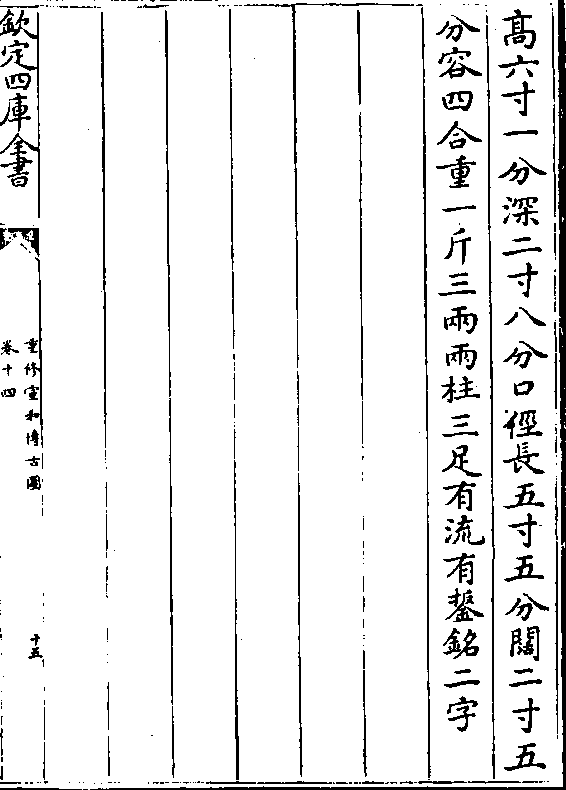 高六寸一分深二寸八分口徑長五寸五分闊二寸五
分容四合重一斤三兩兩柱三足有流有鋬銘二字
欽定四庫全書
重修宣和博古圖
卷十四
十五